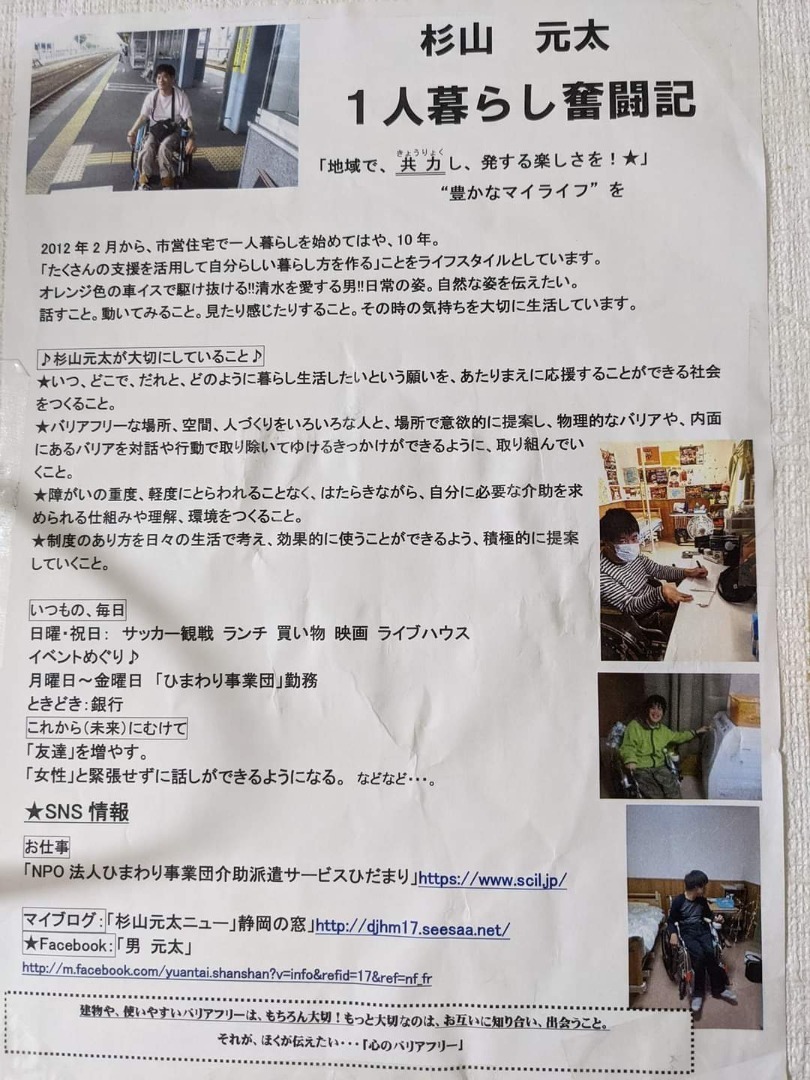 杉山　元太
１人暮らし奮闘記
「地域で、共力し、発する楽しさを！★」
きょうりょく
“豊かなマイライフ” を
2012年2月から、市営住宅で一人暮らしを始めてはや、10年。
「たくさんの支援を活用して自分らしい暮らし方を作る」ことをライフスタイルとしています。
オレンジ色の車イスで駆け抜ける!!清水を愛する男!!日常の姿。自然な姿を伝えたい。
話すこと。動いてみること。見たり感じたりすること。その時の気持ちを大切に生活しています。
♪杉山元太が大切にしていること♪
★いつ、どこで、だれと、どのように暮らし生活したいという願いを、あたりまえに応援することができる社会
をつくること。
★バリアフリーな場所、空間、人づくりをいろいろな人と、場所で意欲的に提案し、物理的なバリアや、内面
にあるバリアを対話や行動で取り除いてゆけるきっかけができるように、取り組んでい
くこと。
★障がいの重度、軽度にとらわれることなく、はたらきながら、自分に必要な介助を求
められる仕組みや理解、環境をつくること。
★制度のあり方を日々の生活で考え、効果的に使うことができるよう、積極的に提案
していくこと。
いつもの、毎日
日曜・祝日： サッカー観戦 ランチ 買い物 映画 ライブハウス
イベントめぐり♪
月曜日～金曜日 「ひまわり事業団」勤務
ときどき：銀行
これから（未来）にむけて
「友達」を増やす。
「女性」と緊張せずに話しができるようになる。 などなど・・・。
★SNS 情報
お仕事
「NPO 法人ひまわり事業団介助派遣サービスひだまり」https://www.scil.jp/
マイブログ：「杉山元太ニュー」静岡の窓」http://djhm17.seesaa.net/
★Facebook：「男 元太」
http://m.facebook.com/yuantai.shanshan?v=info&refid=17&ref=nf_fr
建物や、使いやすいバリアフリーは、もちろん大切！もっと大切なのは、お互いに知り合い、出会うこと。
それが、ぼくが伝えたい・・・「心のバリアフリー」